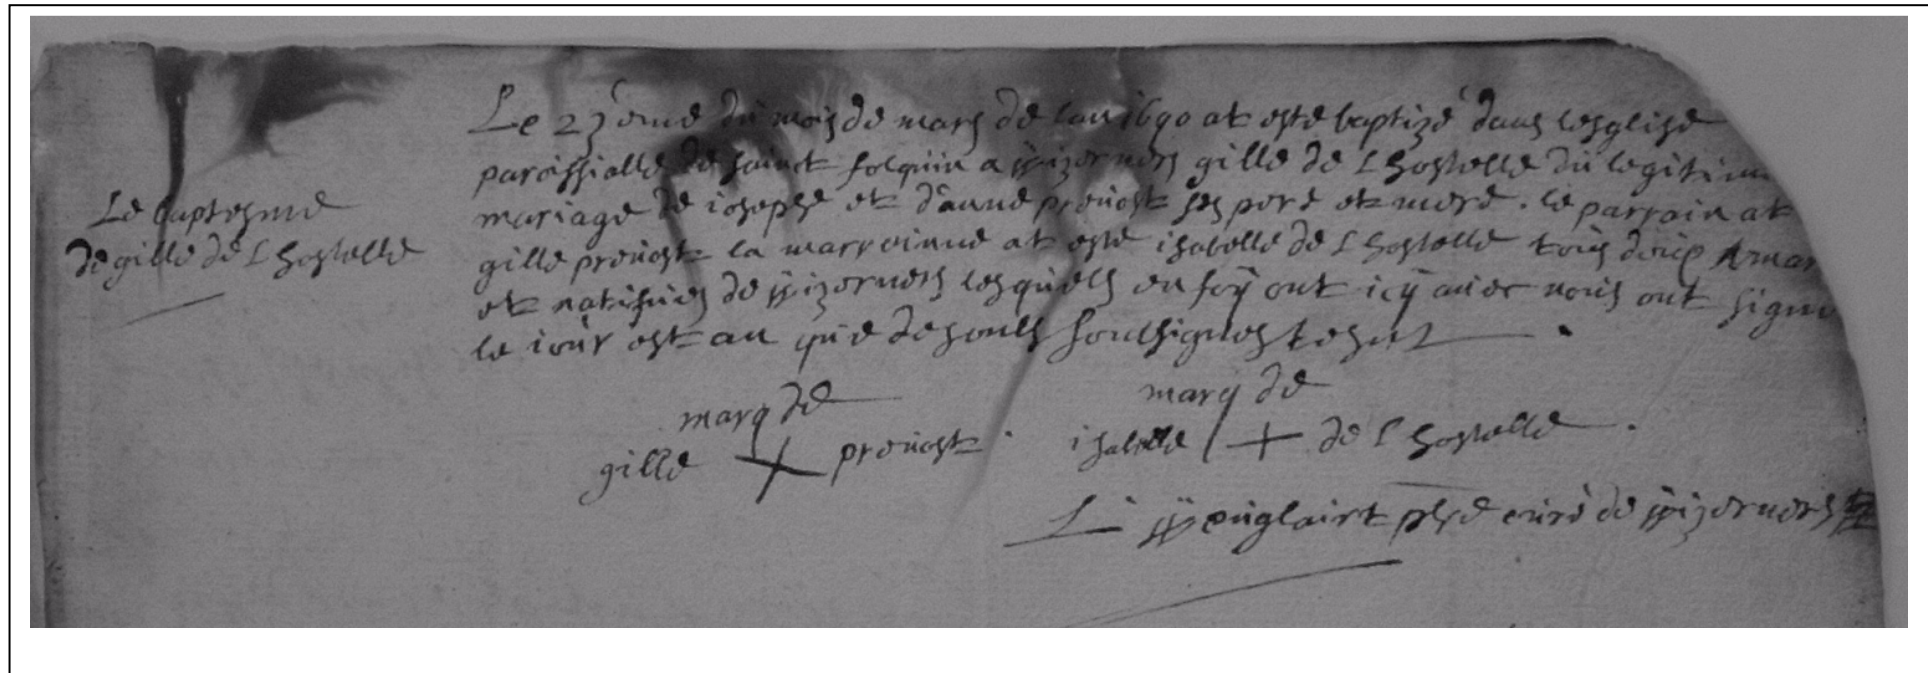 Le baptesme
de gille de Lhostelle
Le 23eme du mois de mars de lan 1690 at este baptizé dans lesglise
paroissialle de sainct folquin a ppizerners gille de Lhostelle du legitim
mariage de iosephe et danne preuost ses pere et mere . le parrain at
gille preuost la marreinne at este isabelle de Lhostelle tous deux
et natifues de ppizerners lesquels en foÿ ont icÿ auec nous ont signe
le iour est an que dessouls soulsignes
marq de
gille preuost .
marq de
isabelle de Lhostelle .
curé de ppizerners